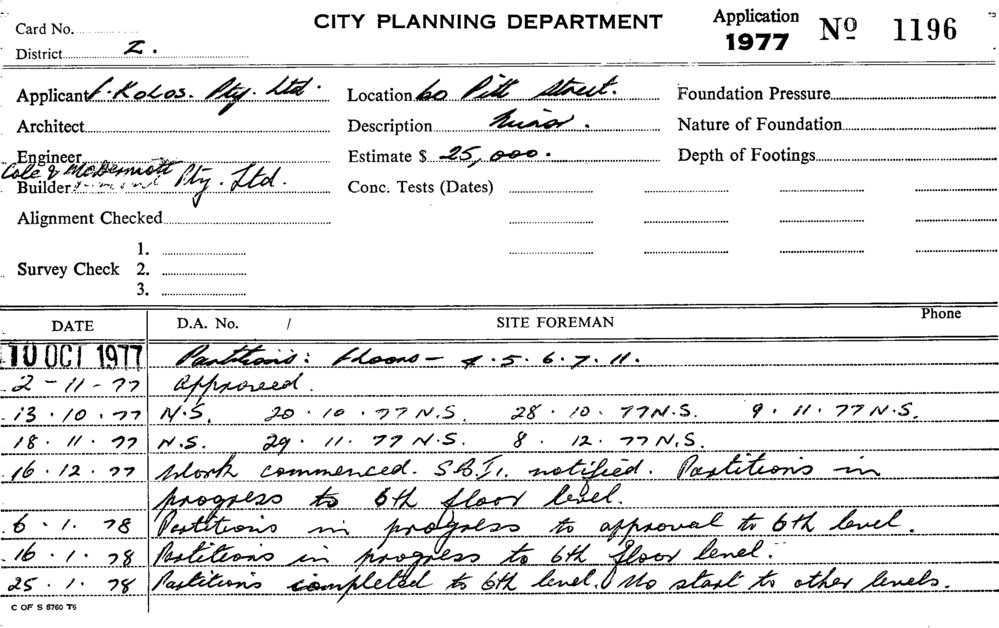 Card No.
CITY PLANNING DEPARTMENT
Application
1977
Nº 1196
District Z.
Applicant P. KOLOS. Pty. Ltd.
Location 60 Pitt Street.
Foundation Pressure
Architect
Description Minor.
Nature of Foundation
Engineer
Estimate $ 25,000.
Depth of Footings
Cole & McDermott
Builder Pty. Ltd.
Conc. Tests (Dates)
Alignment Checked
Survey Check
1.
2.
3.
DATE D.A. No. / SITE FOREMAN Phone
10 OCT 1977 Partitions: Floors – 4.5.6.7.11.
2-11-77 Approved.
13.10.77 N.S. 20.10.77 N.S. 28.10.77 N.S. 9.11.77 N.S.
18.11.77 N.S. 29.11.77 N.S. 8.12.77 N.S.
16.12.77 Work commenced. S.B.I. notified. Partitions in
progress to 6th floor level.
6.1.78 Partitions in progress to approval to 6th level.
16.1.78 Partitions in progress to 6th floor level.
25.1.78 Partitions completed to 6th level. No start to other levels.
C OF S 6760 T6